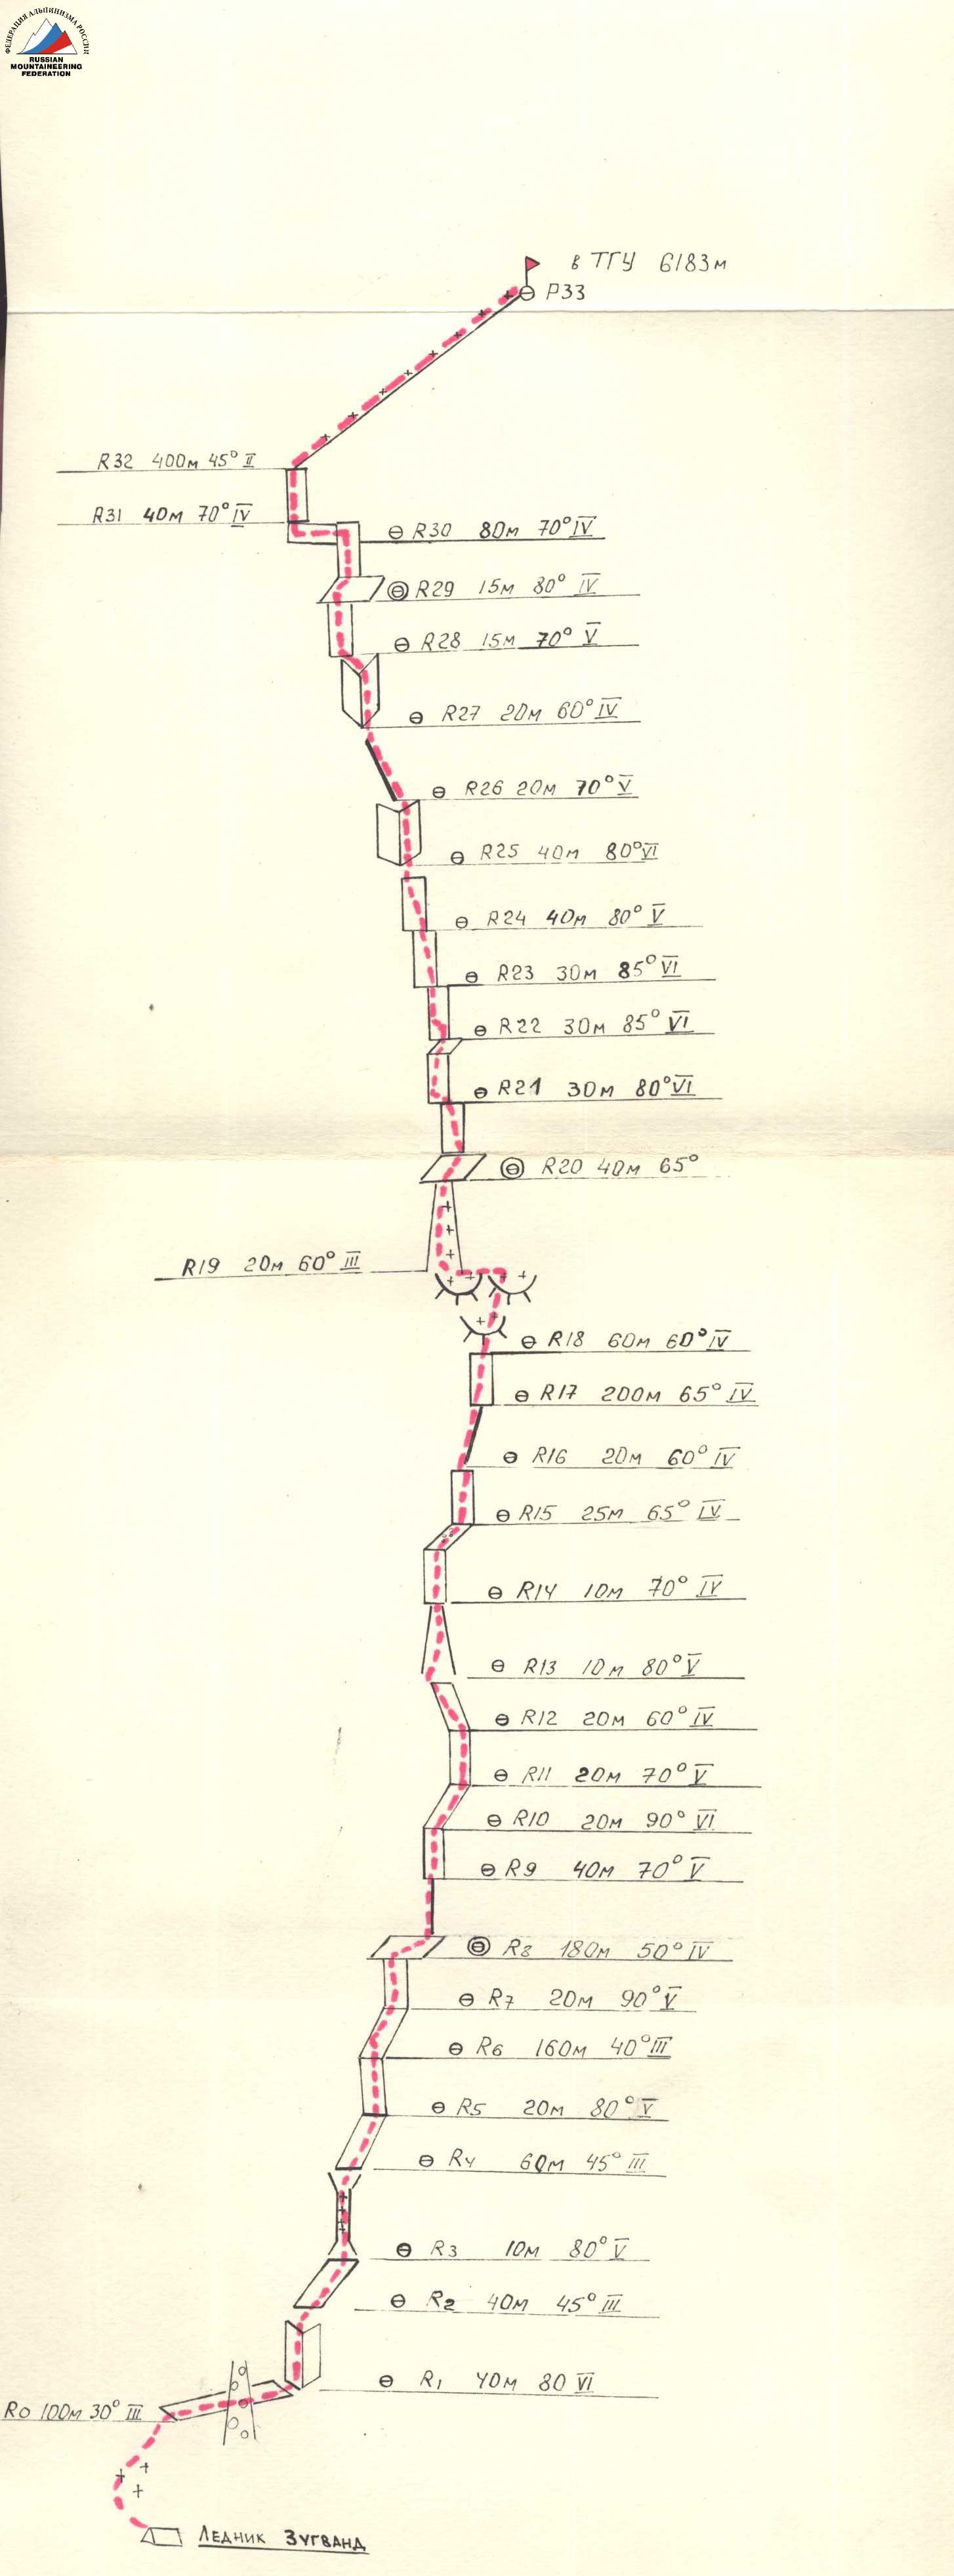 ФЕДЕРАЦИЯ АЛЬПИНИЗМА РОССИИ
RUSSIAN
MOUNTAINEERING
FEDERATION
в ТГУ 6183м
Р33
R32 400м 45° II
R31 40м 70° IV
R30 80м 70° IV
R29 15м 80° IV
R28 15м 70° V
R27 20м 60° IV
R26 20м 70° V
R25 40м 80° VI
R24 40м 80° V
R23 30м 85° VI
R22 30м 85° VI
R21 30м 80° VI
R20 40м 65°
R19 20м 60° III
R18 60м 60° IV
R17 200м 65° IV
R16 20м 60° IV
R15 25м 65° IV
R14 10м 70° IV
R13 10м 80° V
R12 20м 60° IV
R11 20м 70° V
R10 20м 90° VI
R9 40м 70° V
R8 180м 50° IV
R7 20м 90° V
R6 160м 40° III
R5 20м 80° V
R4 60м 45° III
R3 10м 80° V
R2 40м 45° III
R1 40м 80 VI
R0 100м 30° III
Ледник Зугванд